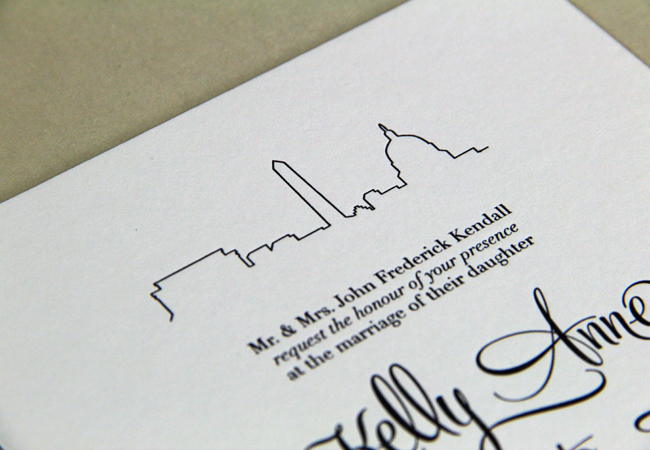 Mr. & Mrs. John Frederick Kendall
request the honour of your presence
at the marriage of their daughter
Kelly Anne